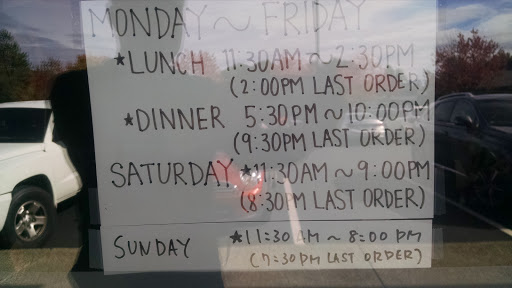 MONDAY ~ FRIDAY
★LUNCH 11:30AM ~ 2:30PM
(2:00PM LAST ORDER)
★DINNER 5:30PM ~ 10:00PM
(9:30PM LAST ORDER)
SATURDAY ★11:30AM ~ 9:00PM
(8:30PM LAST ORDER)
SUNDAY ★11:30AM ~ 8:00PM
(7:30PM LAST ORDER)